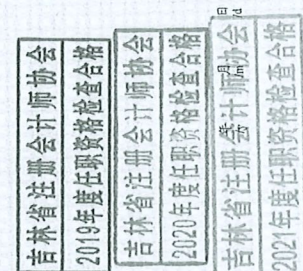 吉林省注册会计师协会
2019年度任职资格检查合格
吉林省注册会计师协会
2020年度任职资格检查合格
吉林省注册会计师协会
2021年度任职资格检查合格
年 月 日
/m /d